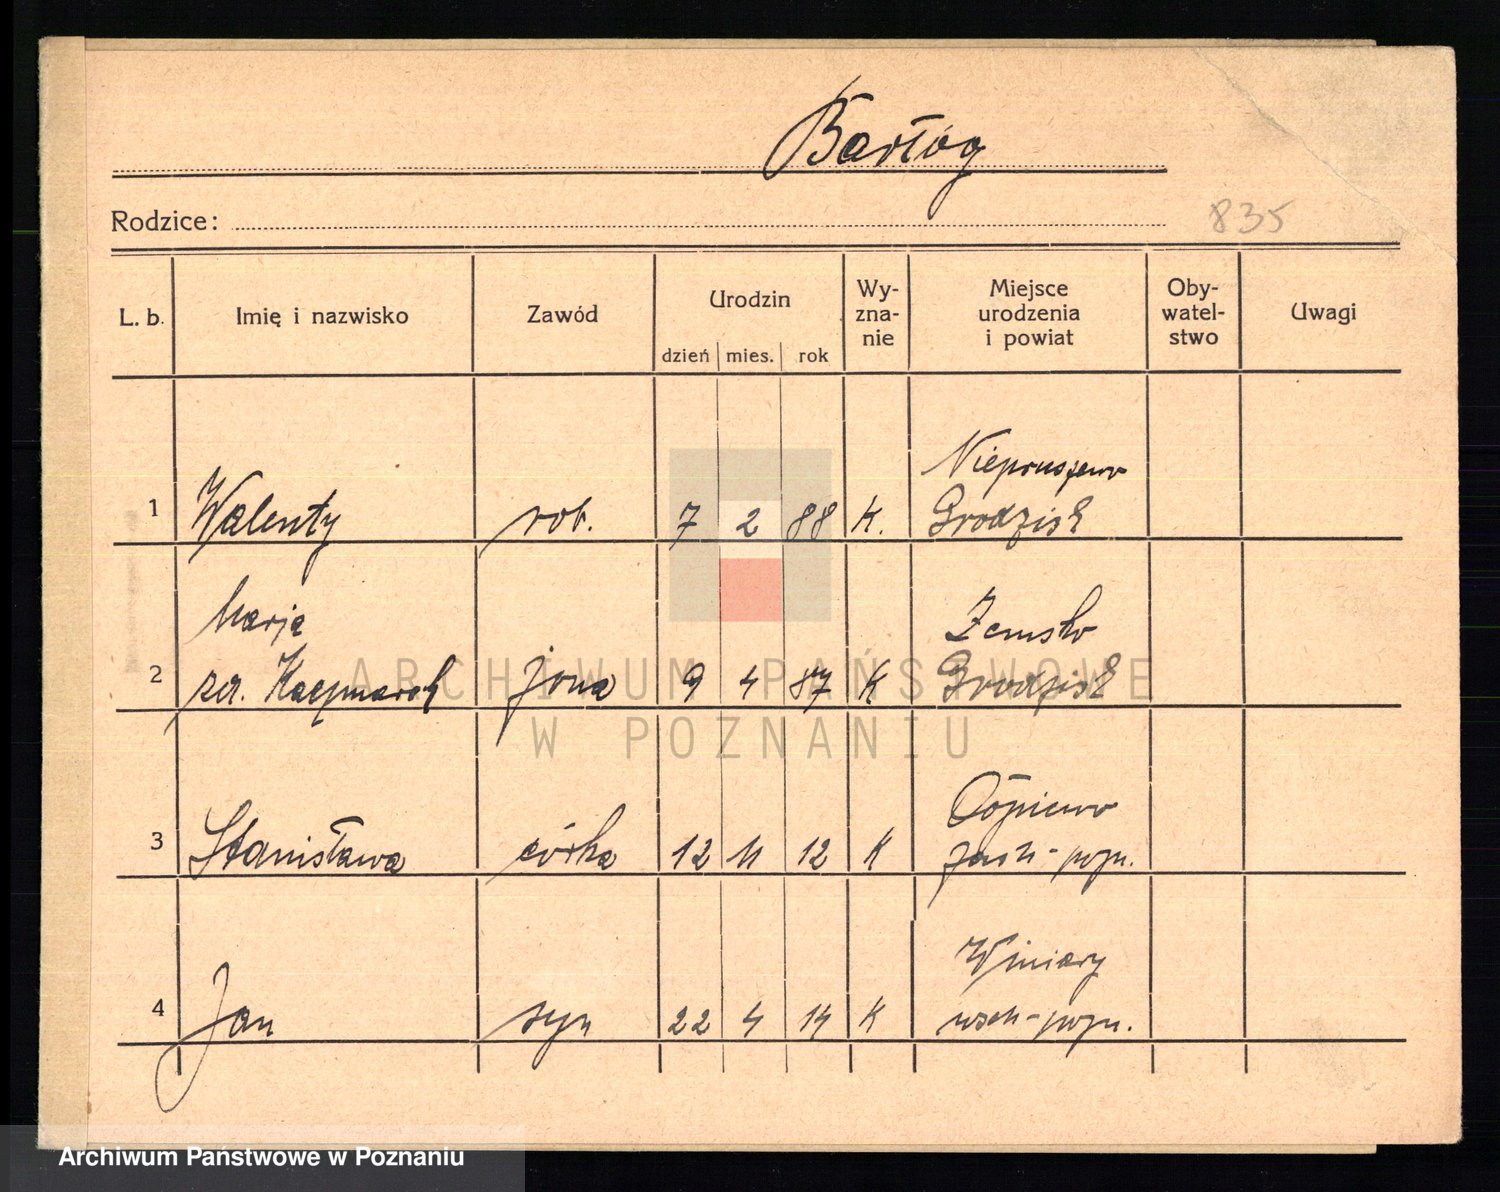 Bartłóg
Rodzice:
835
L. b. Imię i nazwisko Zawód Urodzin dzień mies. rok Wy-zna-nie Miejsce urodzenia i powiat Oby-watel-stwo Uwagi
Niepruszewo
1 Walenty rob. 7 2 88 K. Grodzisk
Marja Zemsko
2 zd. Kaczmarek żona 9 4 87 K Grodzisk
3 Stanisława córka 12 11 12 K zach-pozn.
Winiary
4 Jan syn 22 4 14 K wsch-pozn.
ARCHIWUM PAŃSTWOWE
W POZNANIU
Archiwum Państwowe w Poznaniu